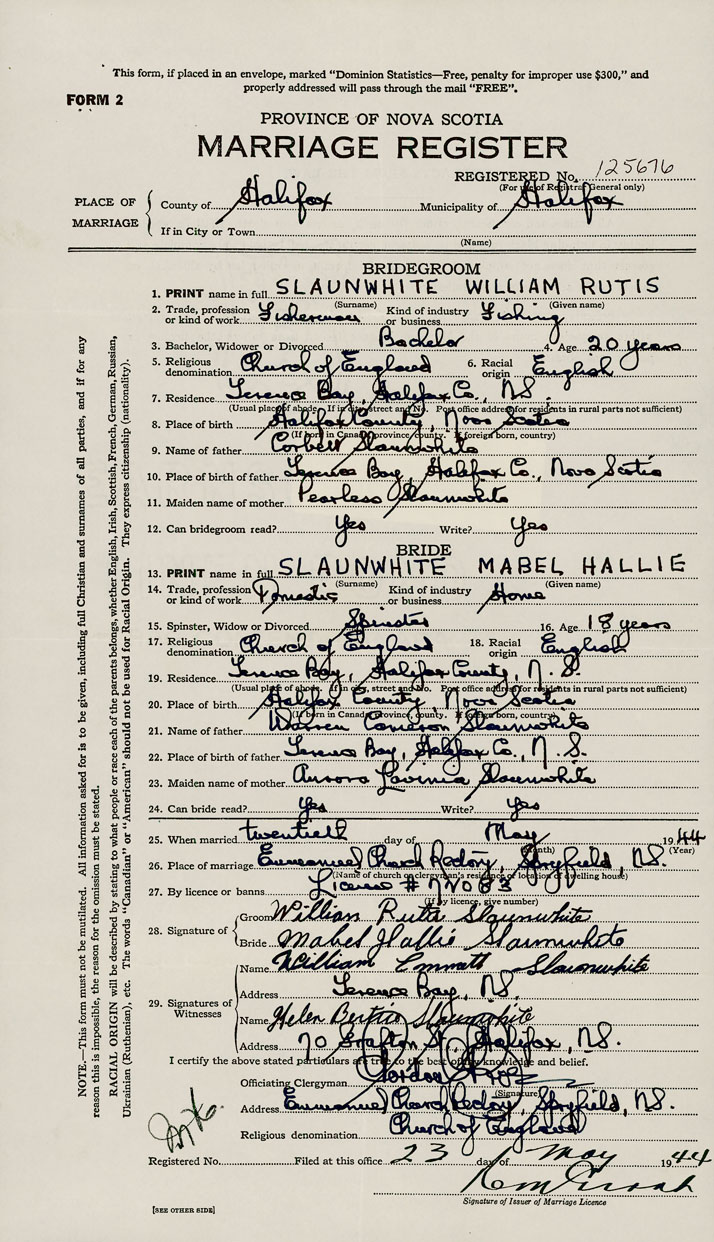 This form, if placed in an envelope, marked “Dominion Statistics—Free, penalty for improper use $300,” and
properly addressed will pass through the mail “FREE”.
FORM 2
PROVINCE OF NOVA SCOTIA
MARRIAGE REGISTER
REGISTERED No. 125676
(For use of Registrar General only)
PLACE OF MARRIAGE
County of Halifax Municipality of Halifax
If in City or Town
(Name)
BRIDEGROOM
1. PRINT name in full SLAUNWHITE WILLIAM RUTIS
(Surname) (Given name)
2. Trade, profession or kind of work Fisherman Kind of industry or business Fishing
3. Bachelor, Widower or Divorced Bachelor 4. Age 20 years
5. Religious denomination Church of England 6. Racial origin English
7. Residence Terence Bay, Halifax Co., N.S.
(Usual place of abode. If in city, street and No. Post office address for residents in rural parts not sufficient)
8. Place of birth Halifax County, Nova Scotia
(If born in Canada, province, county. If foreign born, country)
9. Name of father Corbett Slaunwhite
10. Place of birth of father Terence Bay, Halifax Co., Nova Scotia
11. Maiden name of mother Pearless Slaunwhite
12. Can bridegroom read? Yes Write? Yes
BRIDE
13. PRINT name in full SLAUNWHITE MABEL HALLIE
(Surname) (Given name)
14. Trade, profession or kind of work Domestic Kind of industry or business Home
15. Spinster, Widow or Divorced Spinster 16. Age 18 years
17. Religious denomination Church of England 18. Racial origin English
19. Residence Terence Bay, Halifax County, N.S.
(Usual place of abode. If in city, street and No. Post office address for residents in rural parts not sufficient)
20. Place of birth Halifax County, Nova Scotia
(If born in Canada, province, county. If foreign born, country)
21. Name of father Warren Cameron Slaunwhite
22. Place of birth of father Terence Bay, Halifax Co., N.S.
23. Maiden name of mother Aurora Lavinia Slaunwhite
24. Can bride read? Yes Write? Yes
25. When married twentieth day of May 1944
(Month) (Year)
26. Place of marriage Emmanuel Church Rectory, Spryfield, N.S.
(Name of church or clergyman's residence or location of dwelling house)
27. By licence or banns License #
(If by licence, give number)
28. Signature of
Groom William Rutis Slaunwhite
Bride Mabel Hallie Slaunwhite
29. Signatures of Witnesses
Name William Emmett Slaunwhite
Address Terence Bay, N.S.
Name Helen Bertha Slaunwhite
Address 70 Grafton St., Halifax, N.S.
I certify the above stated particulars are true to the best of my knowledge and belief.
Officiating Clergyman Gordon
(Signature)
Address Emmanuel Church Rectory, Spryfield, N.S.
Religious denomination Church of England
Registered No. Filed at this office 23 day of May 1944
Signature of Issuer of Marriage Licence
[SEE OTHER SIDE]
NOTE.—This form must not be mutilated. All information asked for is to be given, including full Christian and surnames of all parties, and if for any
reason this is impossible, the reason for the omission must be stated.
RACIAL ORIGIN will be described by stating to what people or race each of the parents belongs, whether English, Irish, Scottish, French, German, Russian,
Ukrainian (Ruthenian), etc. The words “Canadian” or “American” should not be used for Racial Origin. They express citizenship (nationality).